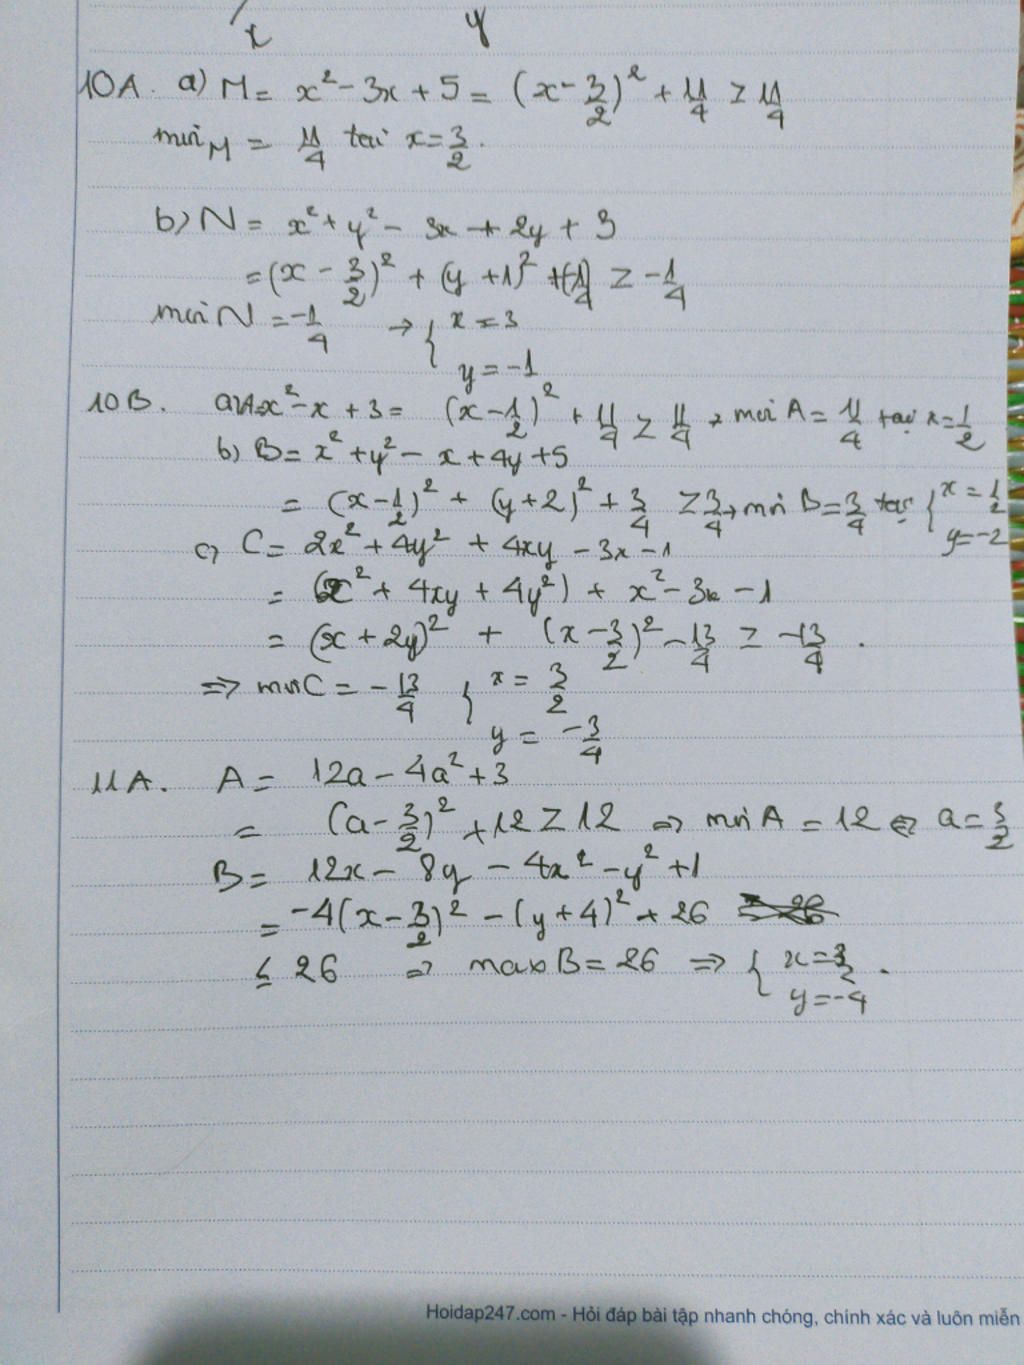 x y
10A. a) M = x² - 3x + 5 = (x - 3/2)² + 11/4 ≥ 11/4
min M = 11/4 tại x = 3/2.
b) N = x² + y² - 3x + 2y + 3
= (x - 3/2)² + (y + 1)² + (-1/4) ≥ -1/4
min N = -1/4 → { x = 3
y = -1
10B. a) A = x² - x + 3 = (x - 1/2)² + 11/4 ≥ 11/4 → min A = 11/4 tại x = 1/2
b) B = x² + y² - x + 4y + 5
= (x - 1/2)² + (y + 2)² + 3/4 ≥ 3/4 → min B = 3/4 tại { x = 1/2
y = -2
c) C = 2x² + 4y² + 4xy - 3x - 1
= (x² + 4xy + 4y²) + x² - 3x - 1
= (x + 2y)² + (x - 3/2)² - 13/4 ≥ -13/4.
⇒ min C = -13/4 { x = 3/2
y = -3/4
11A. A = 12a - 4a² + 3
= (a - 3/2)² + 12 ≥ 12 ⇒ min A = 12 ⇔ a = 3/2
B = 12x - 8y - 4x² - y² + 1
= -4(x - 3/2)² - (y + 4)² + 26
≤ 26 ⇒ max B = 26 ⇒ { x = 3/2.
y = -4
Hoidap247.com - Hỏi đáp bài tập nhanh chóng, chính xác và luôn miễn